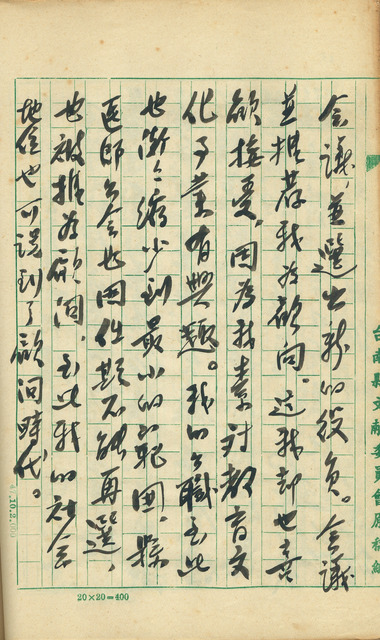 會議，並選出新的役員。會議
並推荐我為顧問。這我却也喜
欣接受，因為我素對教育文
化事業有興趣。我的公職至此
也漸漸縮少到最小的範圍，縣
医師公会也因任期不能再選，
也被推為顧問，至此我的社会
地位也可說到了顧問時代。
台南縣文献委員會原稿紙
10.2.
20×20=400